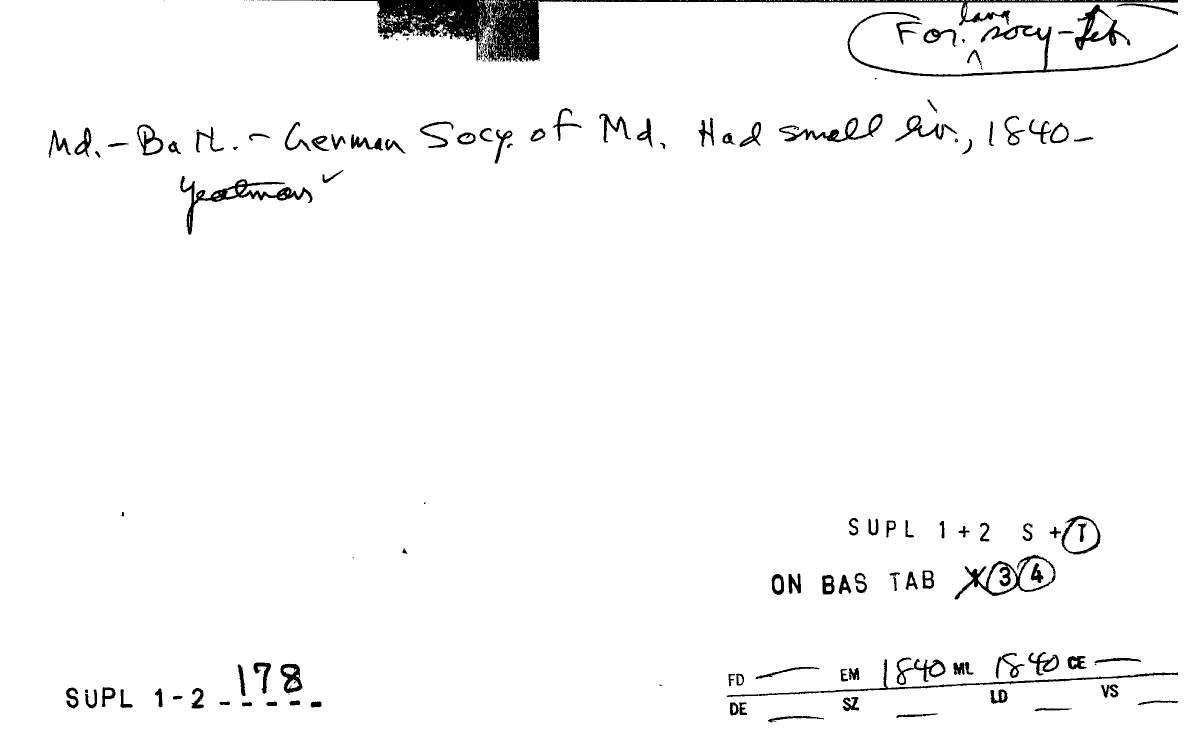 For. lang socy-Lib.
Md.-Balt.- German Socy. of Md. Had small liv., 1840-
Yeatman ✓
SUPL 1+2 S + T
ON BAS TAB X 3 4
SUPL 1-2 178
FD — EM 1840 ML 1840 CE —
DE — SZ — LD — VS —